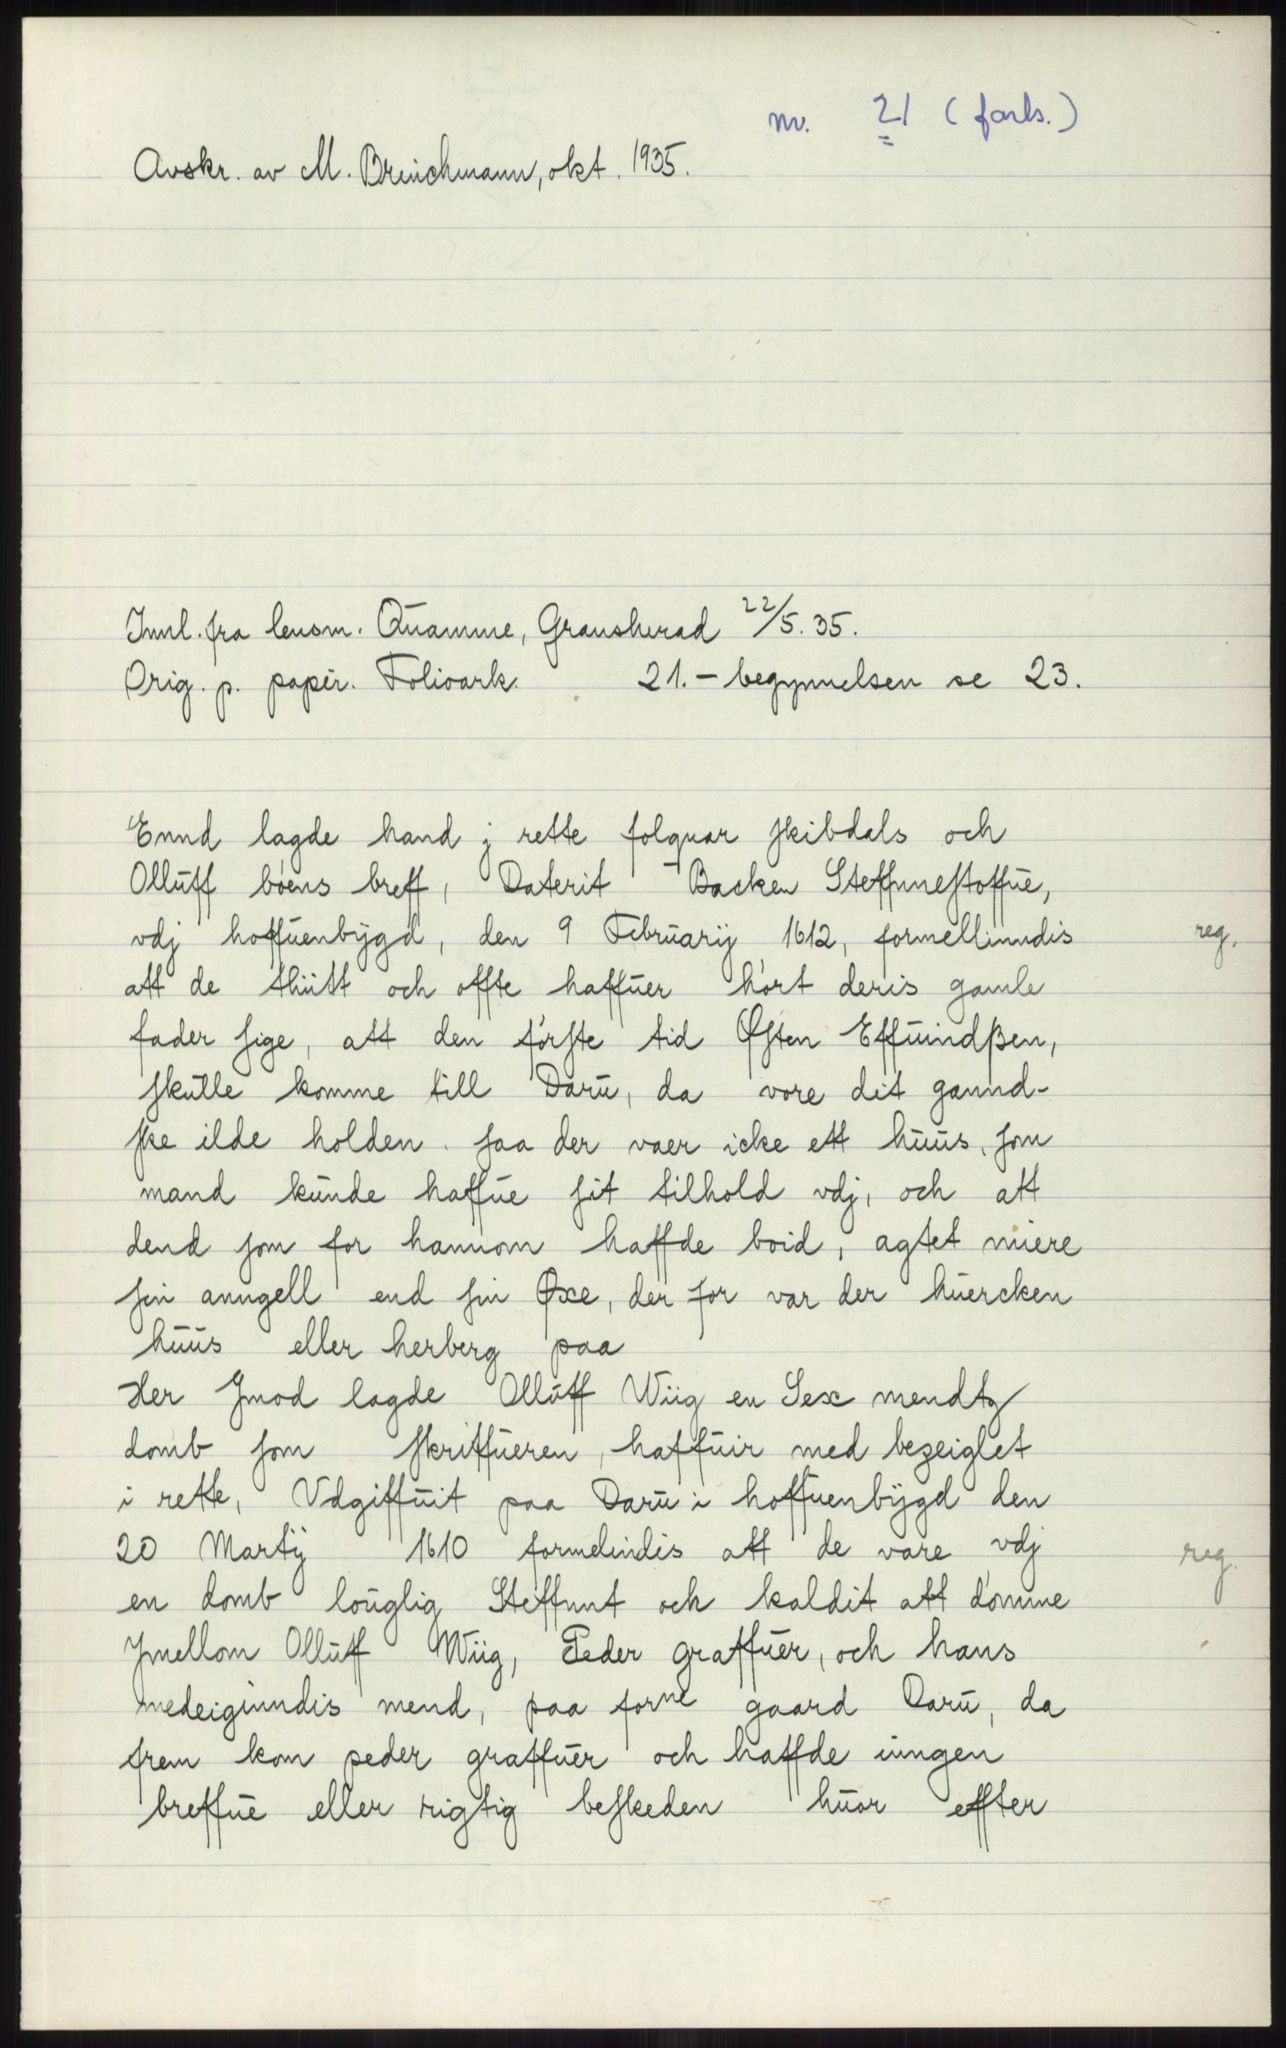 nr. 21 (forts.)
Avskr. av M. Brinchmann, okt. 1935.
Innl. fra lensm. Quamme, Gransherad 22/5.35.
Orig. p. papir. Folioark. 21. – begynnelsen se 23.
Ennd lagde hand j rette folquar skibdals och
Olluff boens breff, Daterit Backen Steffnestoffue,
vdj hoffuenbÿgd, den 9 Februarij 1612, formellinndis reg.
att de thiitt och offte haffuer hört deris gamle
fader sige, att den förste tid Østen Effuindßen,
skulle komme till Daru, da vore dit gannd-
ske ilde holden. saa der vaer icke ett huus, som
mand kunde haffue sit tilhold vdj, och att
dend som for hannom haffde boid, agtet miere
sin anngell end sin Øxe, der for var der huercken
huus eller herberg paa
Her Jmod lagde Olluff Wiig en Sex mendtz
domb som skriffueren, haffuir med bezeiglet
i rette, Vdgiffuit paa Daru i hoffuenbÿgd den
20 Martÿ 1610 formelindis att de vare vdj reg.
en domb louglig Steffnnt och kaldit att dömme
Jmellom Olluff Wiig, Peder graffuer, och hans
medeiginndis mend, paa forne gaard Daru, da
frem kom peder graffuer och haffde inngen
breffue eller rigtig beskeden huor effter